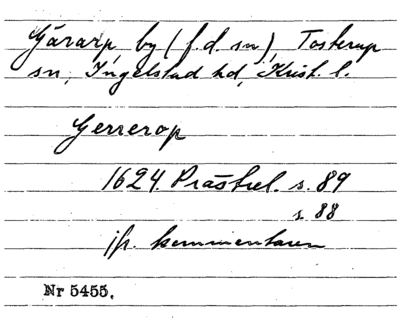 Gärarp by (f.d. sn), Tosterup
sn, Ingelstad hd, Krist. l.
Gerrerop
1624. Prästrel. s. 89
s. 88
jfr. kommentaren
Nr 5455.